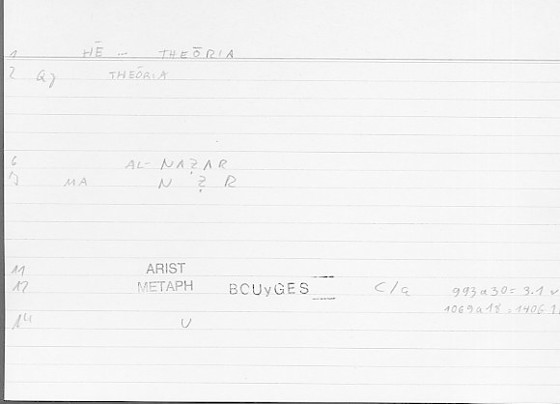 1 HĒ ... THEŌRIA
2 Gj THEŌRIA
6 AL-NAẒAR
7 MA N Ẓ R
11 ARIST
12 METAPH BOUyGES C/a 993a30 = 3.1
1069a18 , 1406
14 V